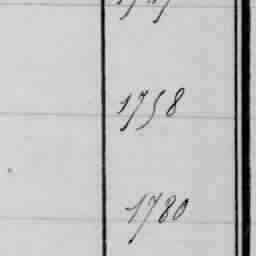 1758
1780